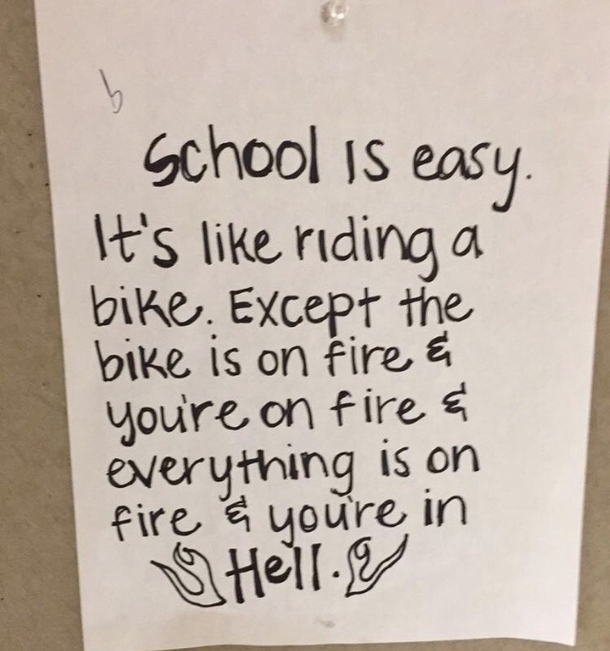 b
School is easy.
It's like riding a
bike. Except the
bike is on fire &
you're on fire &
everything is on
fire & you're in
Hell.